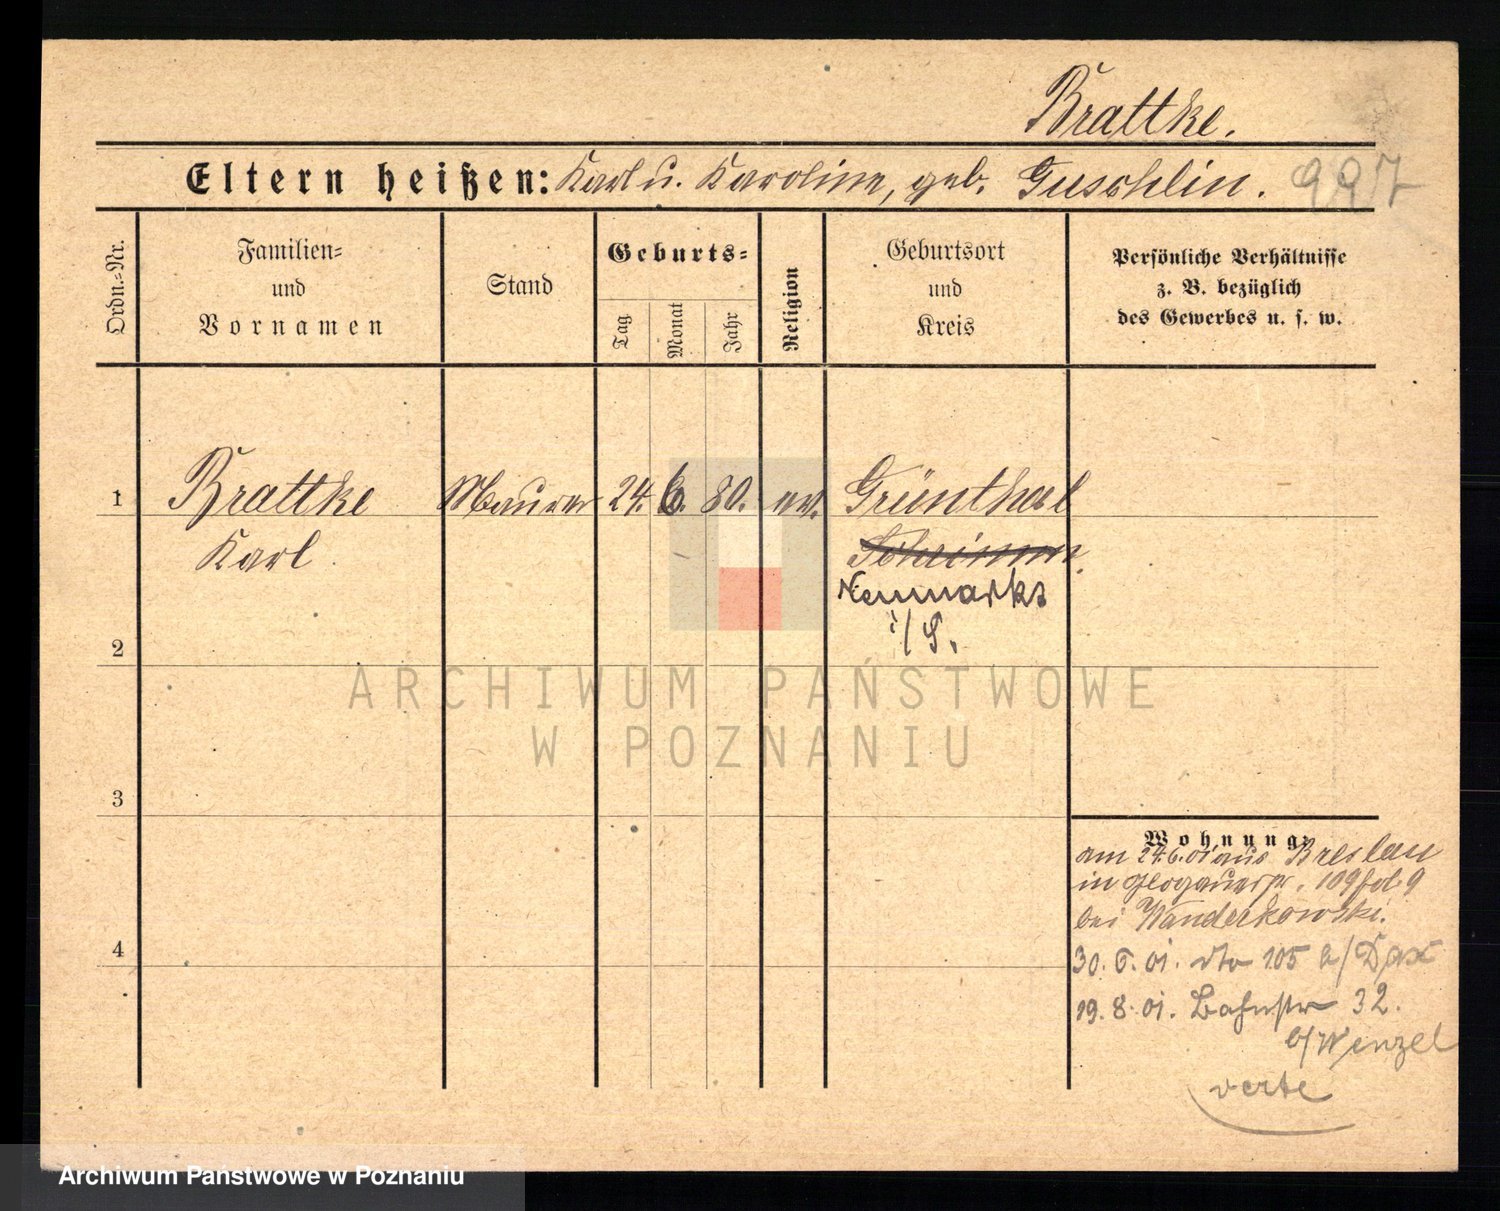 Brattke.
Eltern heißen: Karl u. Karoline, geb. Guschlin.
997
Ordn.-Nr.
Familien-
und
Vornamen
Stand
Geburts-
Tag
Monat
Jahr
Religion
Geburtsort
und
Kreis
Persönliche Verhältnisse
z. B. bezüglich
des Gewerbes u. s. w.
1
Brattke
Maurer
24. 6. 80.
ev.
Grünthal
Karl
Neumarkt
i/S.
2
ARCHIWUM PAŃSTWOWE
W POZNANIU
3
Wohnung:
am 24.6.01 aus Breslau
in Glogauerstr. 109
bei Wanderkowski.
4
30. 6. 01. dto 105 b/Dax
19. 8. 01. Bahnstr 32.
b/Wenzel
verte
Archiwum Państwowe w Poznaniu